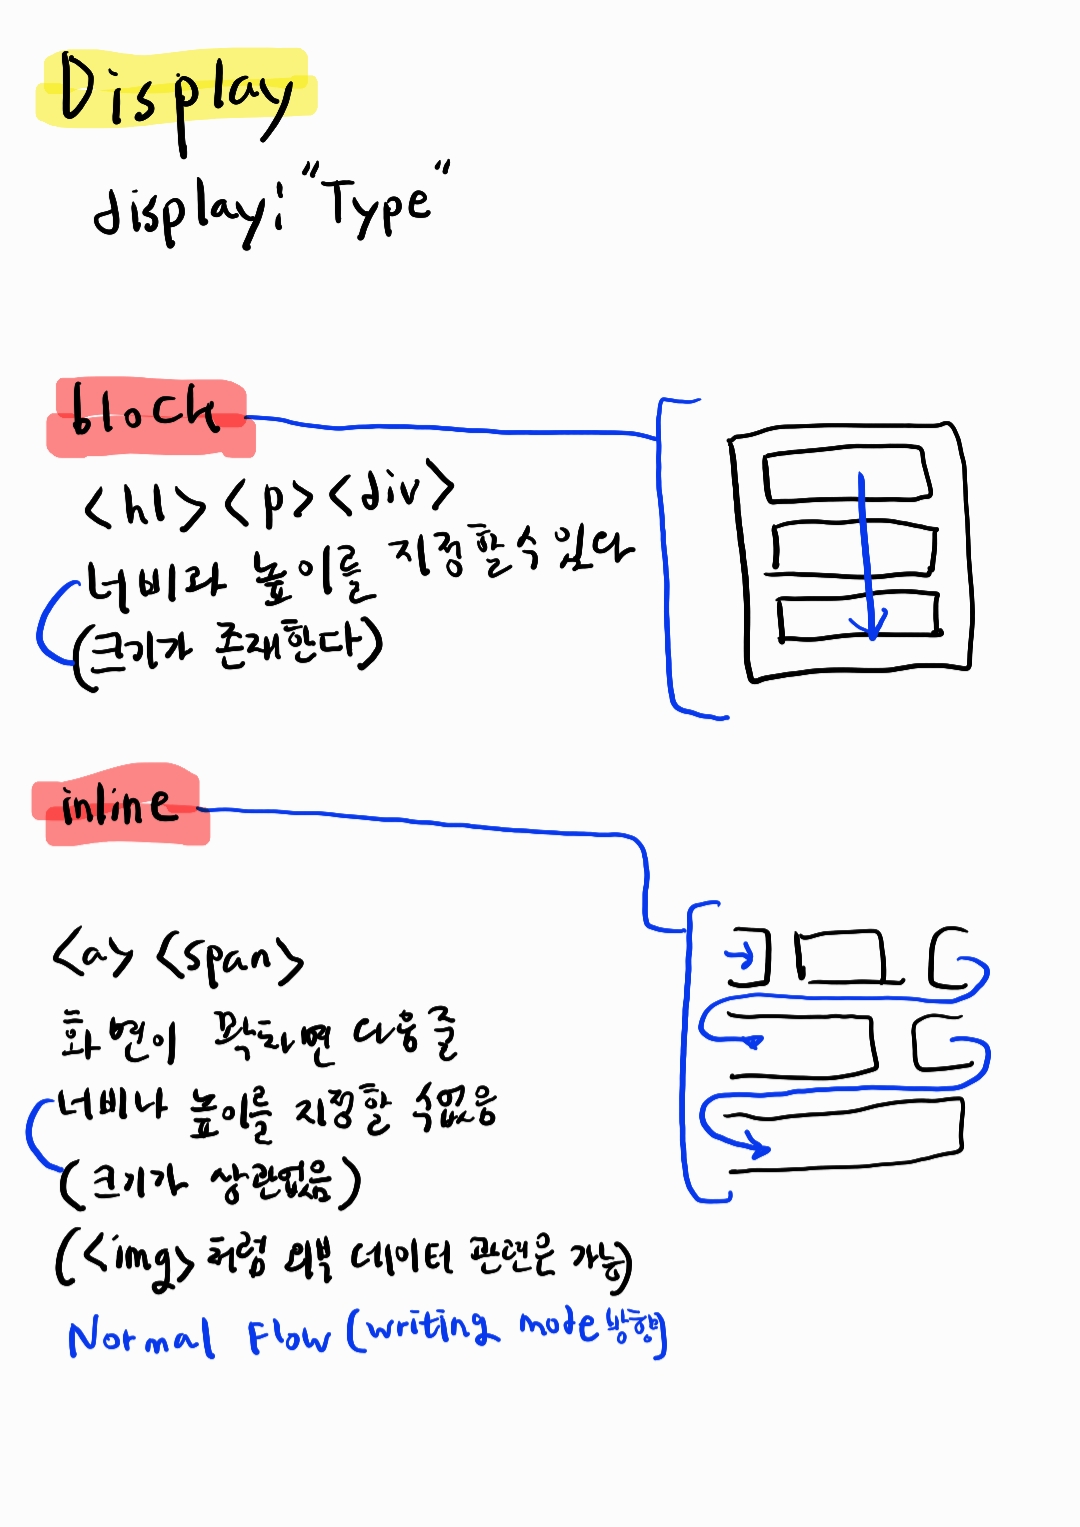 Display
display: "Type"
block
<h1> <p> <div>
너비와 높이를 지정할 수 있다
(크기가 존재한다)
inline
<a> <span>
화면이 꽉차면 다음 줄
너비나 높이를 지정할 수없음
(크기가 상관없음)
(<img> 처럼 외부 데이터 관련은 가능)
Normal Flow (writing mode 방향)